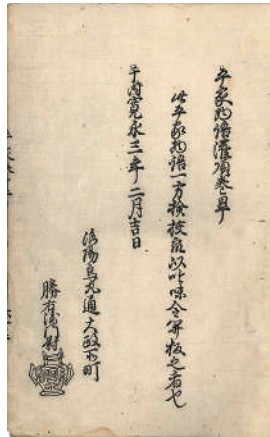 平家物語灌頂巻畢
此平家物語一方検校衆以吟味令開板之者也
于時寛永三年二月吉日
洛陽烏丸通大政所町
勝右衛門尉